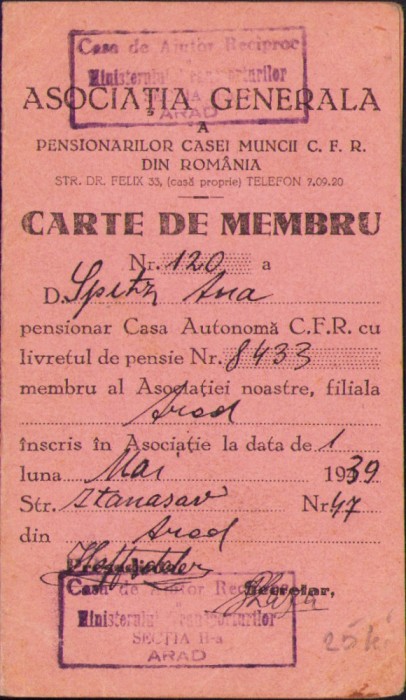 Casa de Ajutor Reciproc
a
Ministerului Transporturilor
SECȚIA II-a
ARAD
ASOCIAȚIA GENERALA
A
PENSIONARILOR CASEI MUNCII C. F. R.
DIN ROMÂNIA
STR. DR. FELIX 33, (casă proprie) TELEFON 7.09.20
CARTE DE MEMBRU
Nr. 120 a
D. Spitz Ana
pensionar Casa Autonomă C.F.R. cu
livretul de pensie Nr. 8433
membru al Asociației noastre, filiala
Arad
înscris în Asociație la data de 1
luna Mai 1939
Str. Nr 47
din Arad
Președinte, Secretar,
Casa de Ajutor Reciproc
a
Ministerului Transporturilor
SECȚIA II-a
ARAD